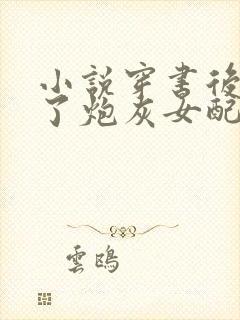 小說穿書後
了炮灰女配
雲鴎